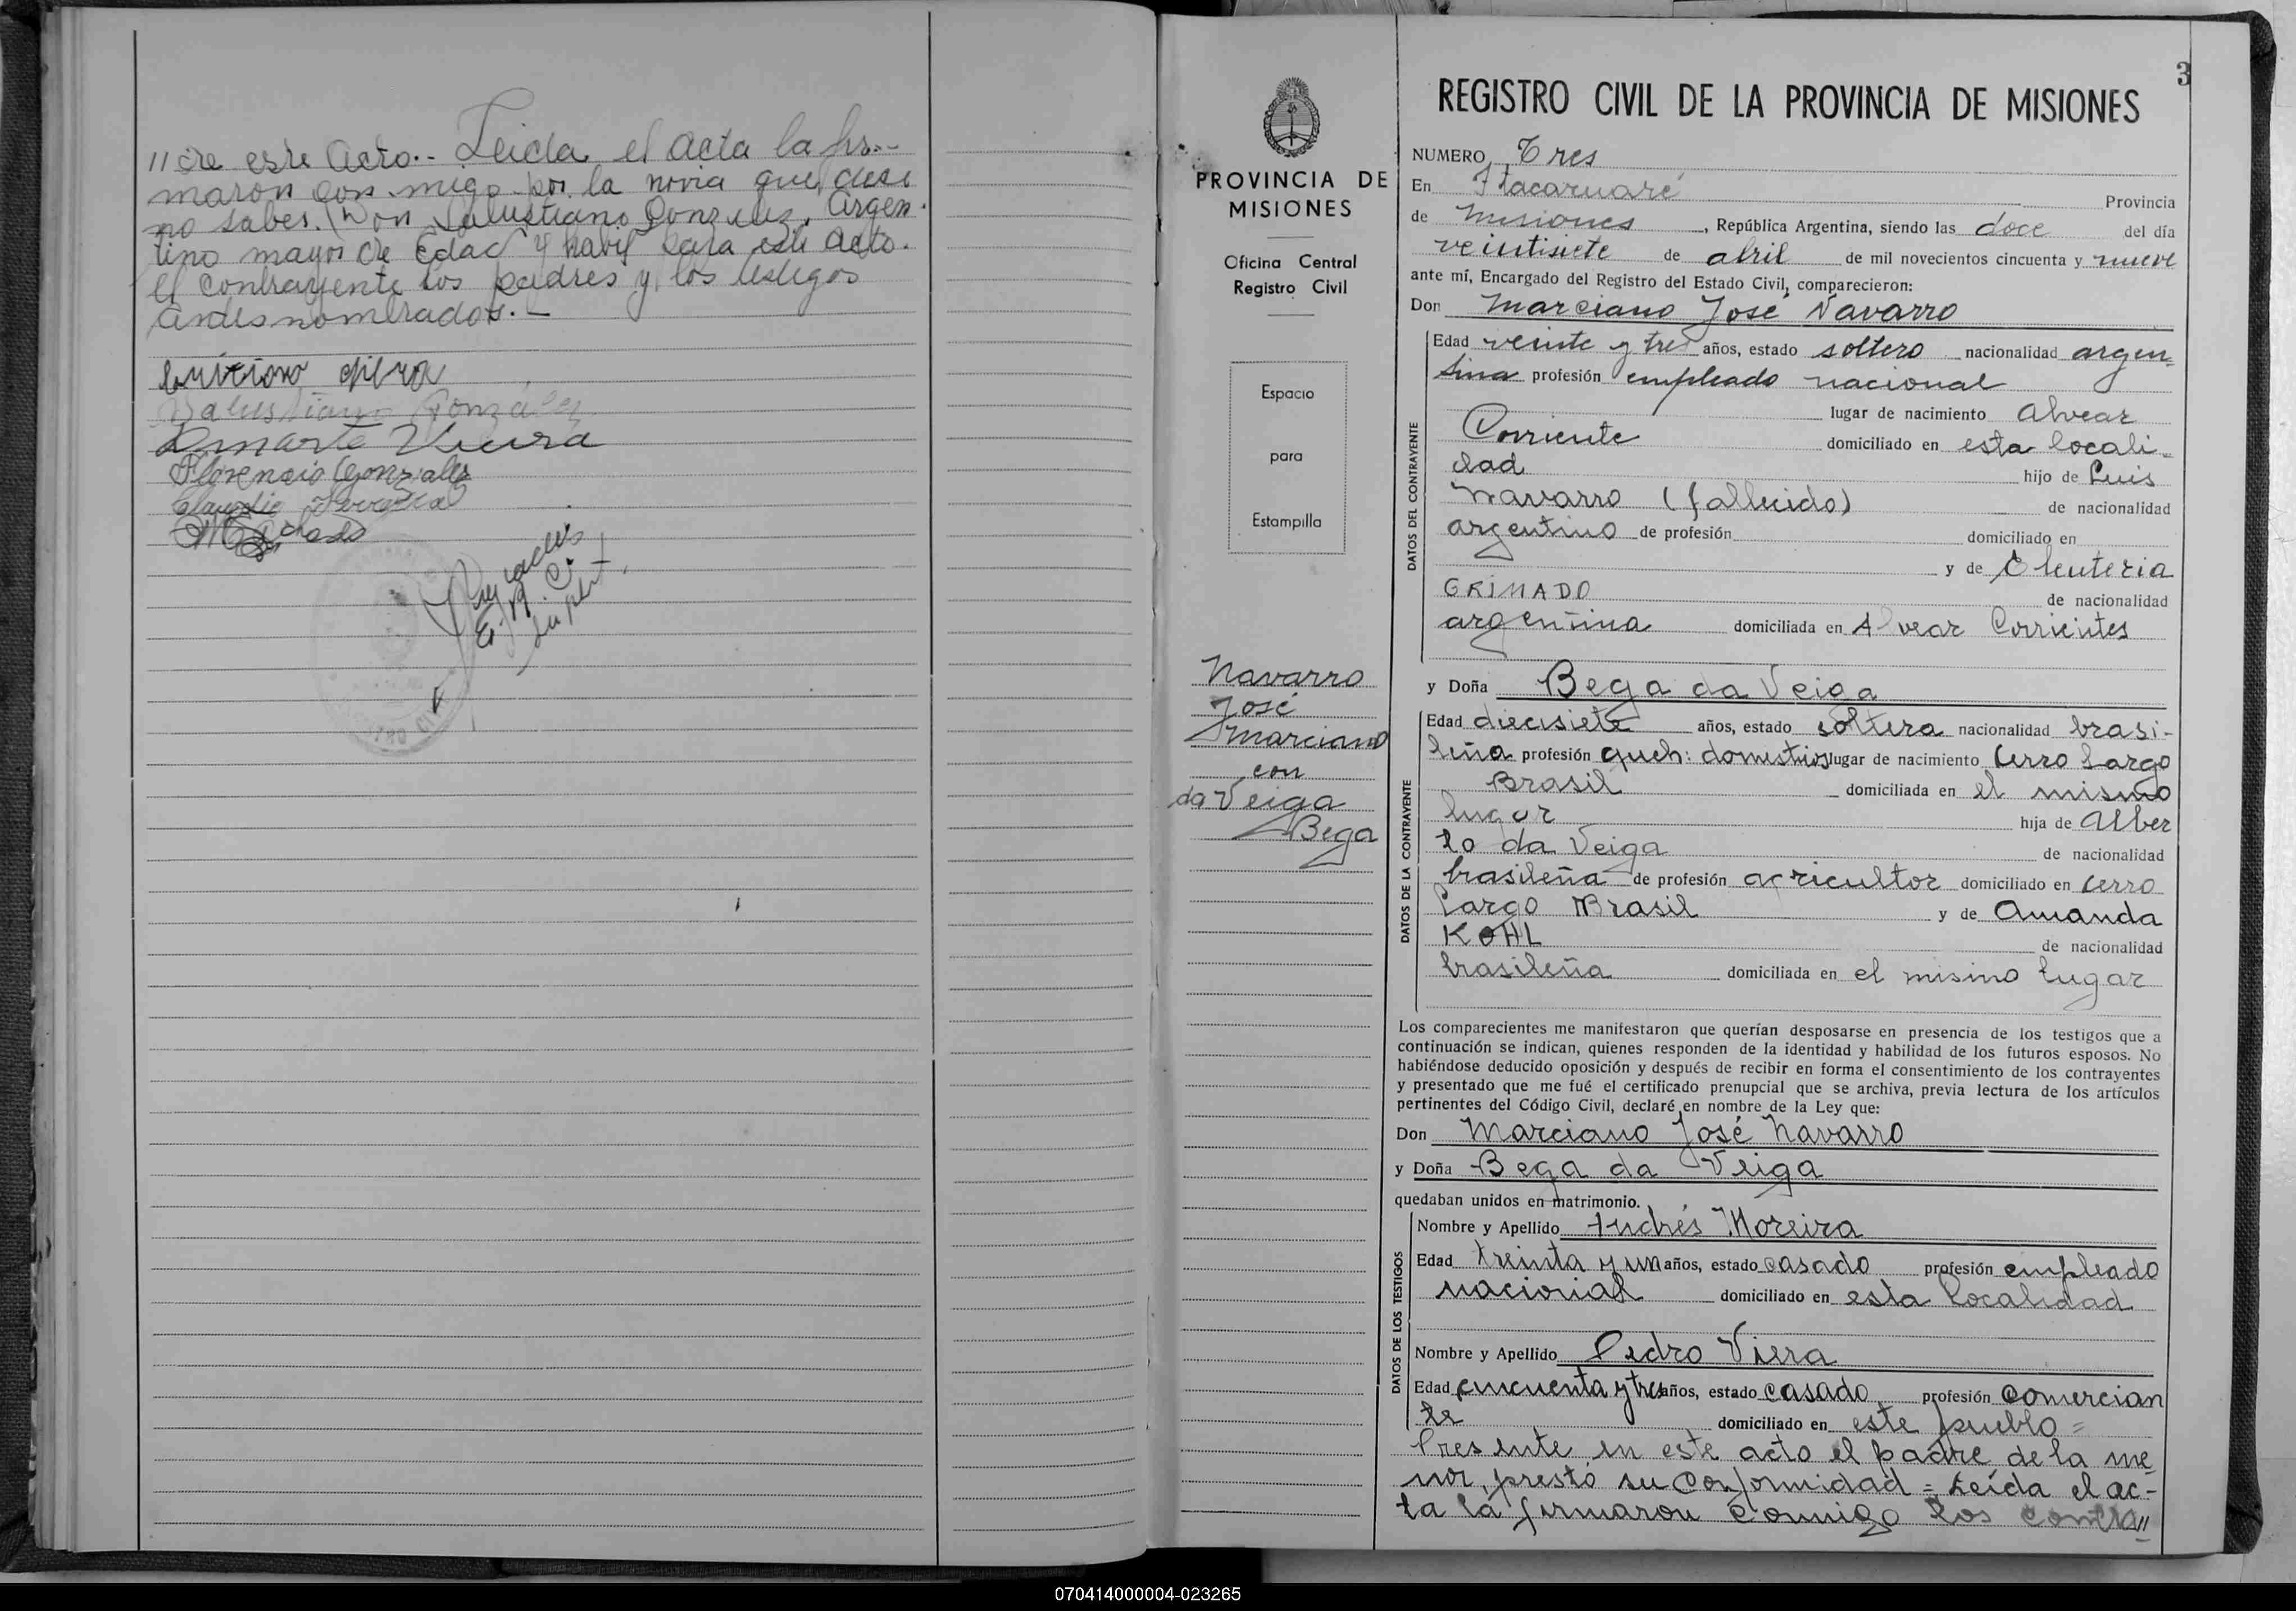 // de este Acto.- Leida el acta la fir.-
maron con migo por la novia que dise
no saber. Don Salustiano Gonzalez, Argen-
tino mayor de Edad y havil para este acto.
el contrayente los padres y los testigos
antes nombrados.-
Salustiano Gonzalez
Florencio Gonzalez
3
REGISTRO CIVIL DE LA PROVINCIA DE MISIONES
PROVINCIA DE
MISIONES
Oficina Central
Registro Civil
Espacio
para
Estampilla
Navarro
José
Marciano
con
da Veiga
Bega
NUMERO Tres
En Itacaruaré Provincia
de Misiones, República Argentina, siendo las doce del día
veintisiete de abril de mil novecientos cincuenta y nueve
ante mí, Encargado del Registro del Estado Civil, comparecieron:
Don Marciano José Navarro
DATOS DEL CONTRAYENTE
Edad veinte y tres años, estado soltero nacionalidad argen-
tina profesión empleado nacional
lugar de nacimiento Alvear
Corriente domiciliado en esta locali-
dad hijo de Luis
Navarro (fallecido) de nacionalidad
argentino de profesión domiciliado en
y de Eleuteria
GRIMADO de nacionalidad
argentina domiciliada en Alvear Corrientes
y Doña Bega da Veiga
DATOS DE LA CONTRAYENTE
Edad diecisiete años, estado soltera nacionalidad brasi-
leña profesión queh: domesticos lugar de nacimiento Cerro Largo
Brasil domiciliada en el mismo
lugar hija de Alber
to da Veiga de nacionalidad
brasileña de profesión agricultor domiciliado en Cerro
Largo Brasil y de Amanda
KOHL de nacionalidad
brasileña domiciliada en el mismo lugar
Los comparecientes me manifestaron que querían desposarse en presencia de los testigos que a
continuación se indican, quienes responden de la identidad y habilidad de los futuros esposos. No
habiéndose deducido oposición y después de recibir en forma el consentimiento de los contrayentes
y presentado que me fué el certificado prenupcial que se archiva, previa lectura de los artículos
pertinentes del Código Civil, declaré en nombre de la Ley que:
Don Marciano José Navarro
y Doña Bega da Veiga
quedaban unidos en matrimonio.
DATOS DE LOS TESTIGOS
Nombre y Apellido Andrés Moreira
Edad treinta y un años, estado casado profesión empleado
nacional domiciliado en esta localidad
Nombre y Apellido Pedro Viera
Edad cincuenta y tres años, estado casado profesión comercian
te domiciliado en este pueblo =
Presente en este acto el padre de la me
nor, prestó su conformidad = Leída el ac-
ta la firmaron conmigo los contra//
070414000004-023265